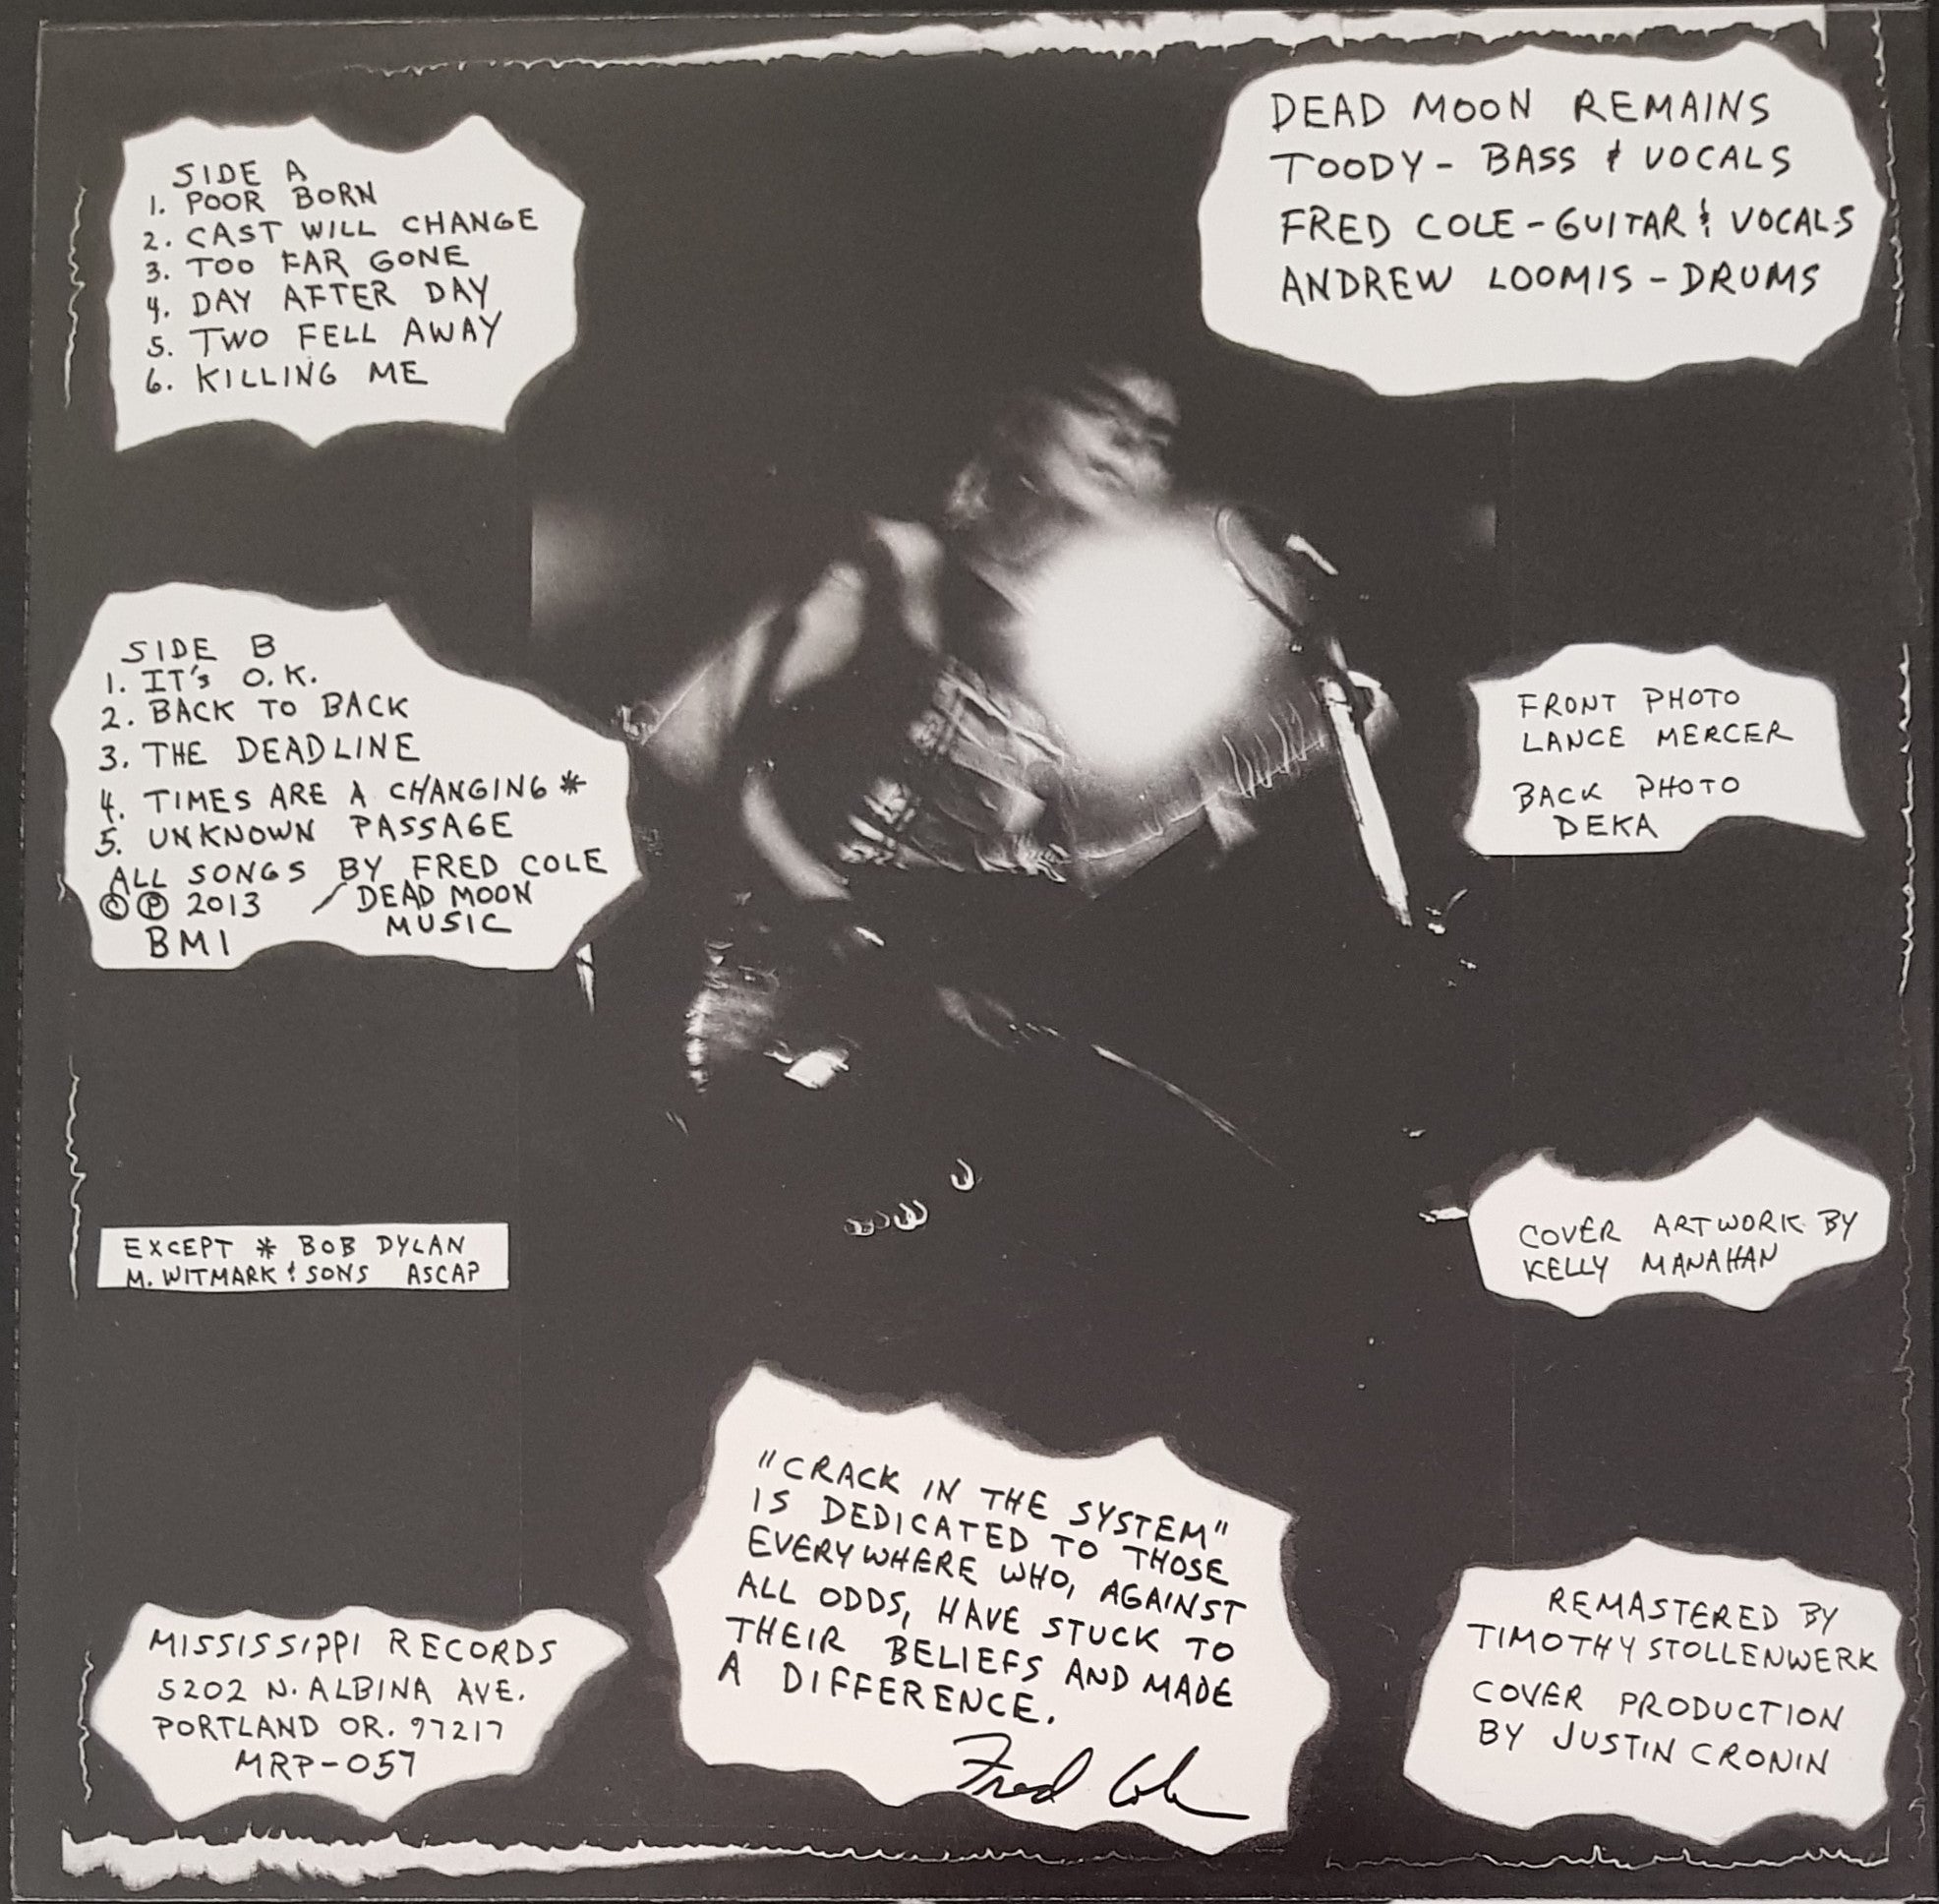 SIDE A
1. POOR BORN
2. CAST WILL CHANGE
3. TOO FAR GONE
4. DAY AFTER DAY
5. TWO FELL AWAY
6. KILLING ME
DEAD MOON REMAINS
TOODY - BASS & VOCALS
FRED COLE - GUITAR & VOCALS
ANDREW LOOMIS - DRUMS
SIDE B
1. IT'S O.K.
2. BACK TO BACK
3. THE DEADLINE
4. TIMES ARE A CHANGING *
5. UNKNOWN PASSAGE
ALL SONGS BY FRED COLE
© ℗ 2013 / DEAD MOON
MUSIC
BMI
FRONT PHOTO
LANCE MERCER
BACK PHOTO
DEKA
EXCEPT * BOB DYLAN
M. WITMARK & SONS ASCAP
COVER ARTWORK BY
KELLY MANAHAN
"CRACK IN THE SYSTEM"
IS DEDICATED TO THOSE
EVERYWHERE WHO, AGAINST
ALL ODDS, HAVE STUCK TO
THEIR BELIEFS AND MADE
A DIFFERENCE.
Fred Cole
MISSISSIPPI RECORDS
5202 N. ALBINA AVE.
PORTLAND OR. 97217
MRP-057
REMASTERED BY
TIMOTHY STOLLENWERK
COVER PRODUCTION
BY JUSTIN CRONIN